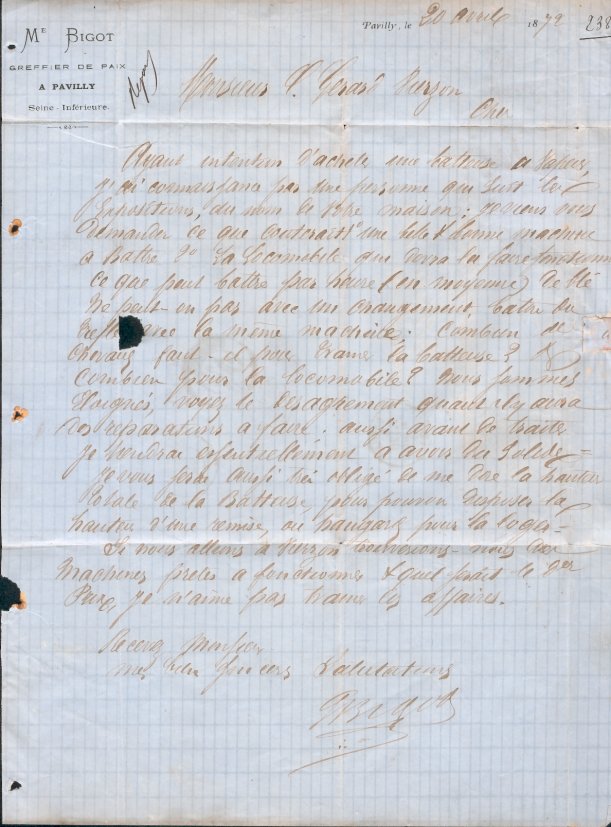 Mᴱ BIGOT
GREFFIER DE PAIX
A PAVILLY
Seine-Inférieure.
Pavilly, le 20 avril 1872
238
Monsieur Gérard Vierzon
Cher
Ayant intention d'acheter une batteuse à vapeur,
j'ai connaissance par une personne qui suit les
Expositions, du nom de votre maison; je viens vous
demander ce que coûterait 1° une belle & bonne machine
à Battre 2° La Locomobile que devra la faire fonctionner
ce que peut battre par heure (en moyenne) de blé
Ne peut-on pas avec un changement, battre du
avec la même machine; Combien de
chevaux faut-il pour trainer la batteuse? &
Combien pour la locomobile? Nous sommes
Eloignés, voyez le désagrément quand il y aura
des réparations à faire. aussi avant de traiter
je tiendrai essentiellement à avoir du solide =
Je vous serai aussi très obligé de me dire la hauteur
totale de la Batteuse, pour pouvoir disposer la
hauteur d'une remise, ou hangard pour la loger =
Si nous allions à Vierzon trouverions-nous des
Machines prêtes à fonctionner & quel serait le der
Prix, je n'aime pas trainer les affaires.
Recevez Monsieur
mes bien sincères salutations
Bigot